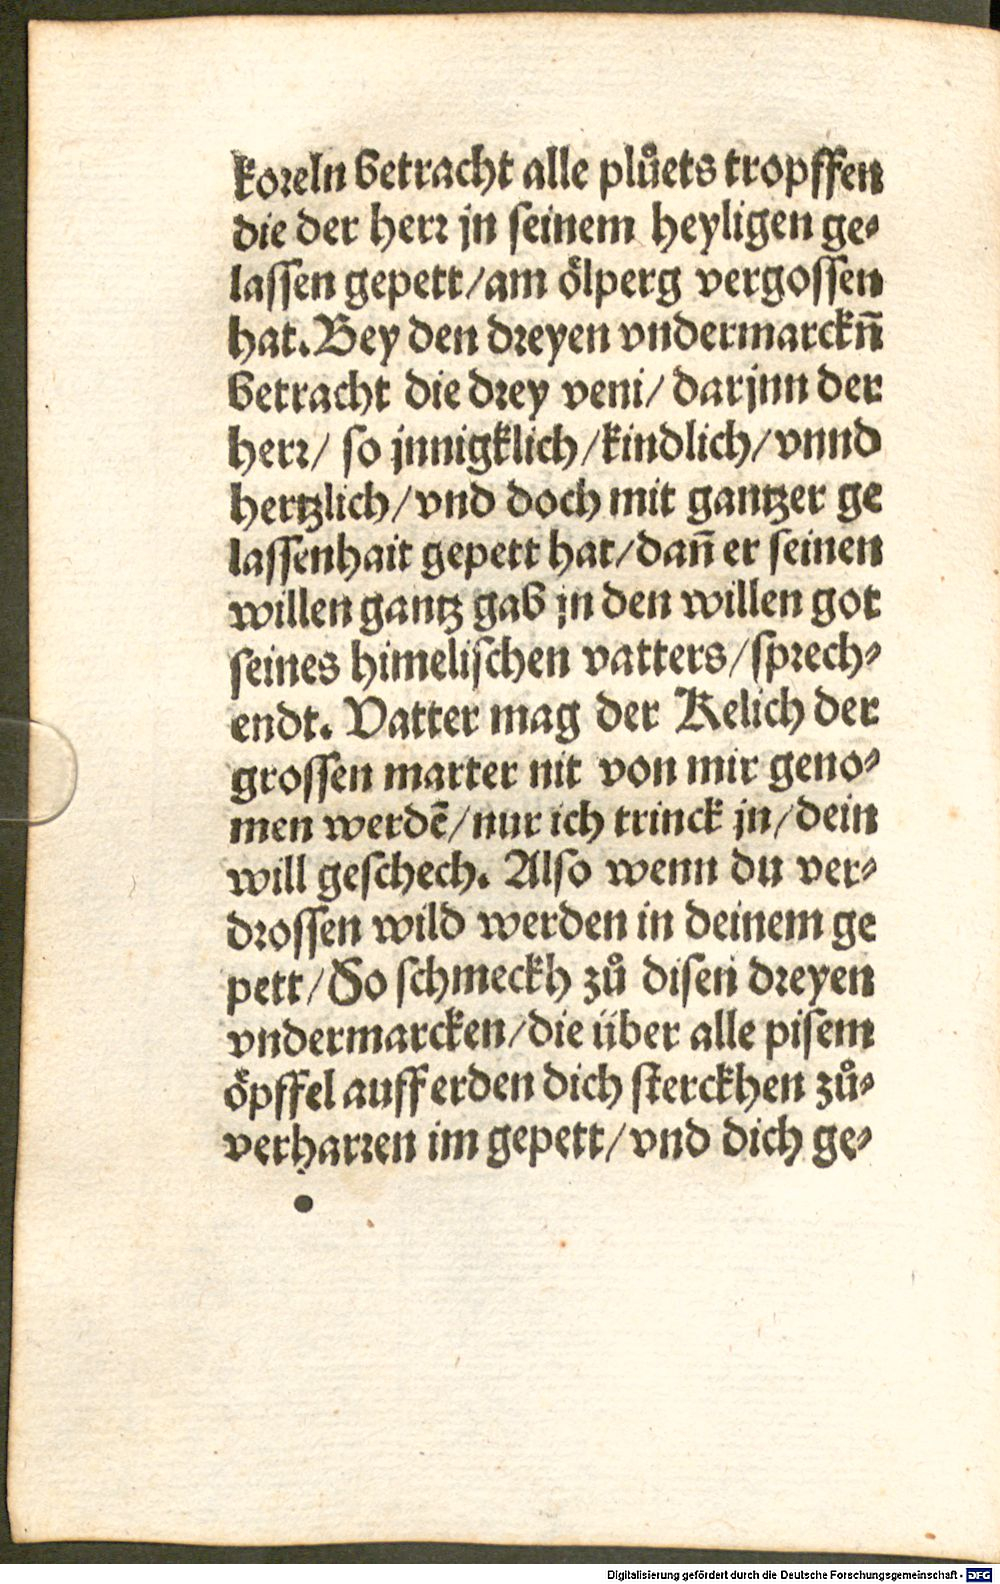 koreln betracht alle plůets tropffen
die der herr jn seinem heyligen ge⸗
lassen gepett/am ölperg vergossen
hat. Bey den dreyen vndermarckñ
betracht die drey veni/ darjnn der
herr/ so jnnigklich/kindlich/vnnd
hertzlich/vnd doch mit gantzer ge
lassenhait gepett hat/dañ er seinen
willen gantz gab jn den willen got
seines himelischen vatters/sprech⸗
endt. Vatter mag der Kelich der
grossen marter nit von mir geno⸗
men werdē/nur ich trinck jn/dein
will geschech. Also wenn du ver⸗
drossen wild werden in deinem ge
pett/So schmeckh zů disen dreyen
vndermarcken/die über alle pisem
öpffel auff erden dich sterckhen zů⸗
verharren im gepett/vnd dich ge⸗
Digitalisierung gefördert durch die Deutsche Forschungsgemeinschaft - DFG